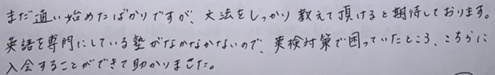 まだ通い始めたばかりですが、文法をしっかり教えて頂けると期待しております。
英語を専門にしている塾がなかなかないので、英検対策で困っていたところ、こちらに
入会することができて助かりました。